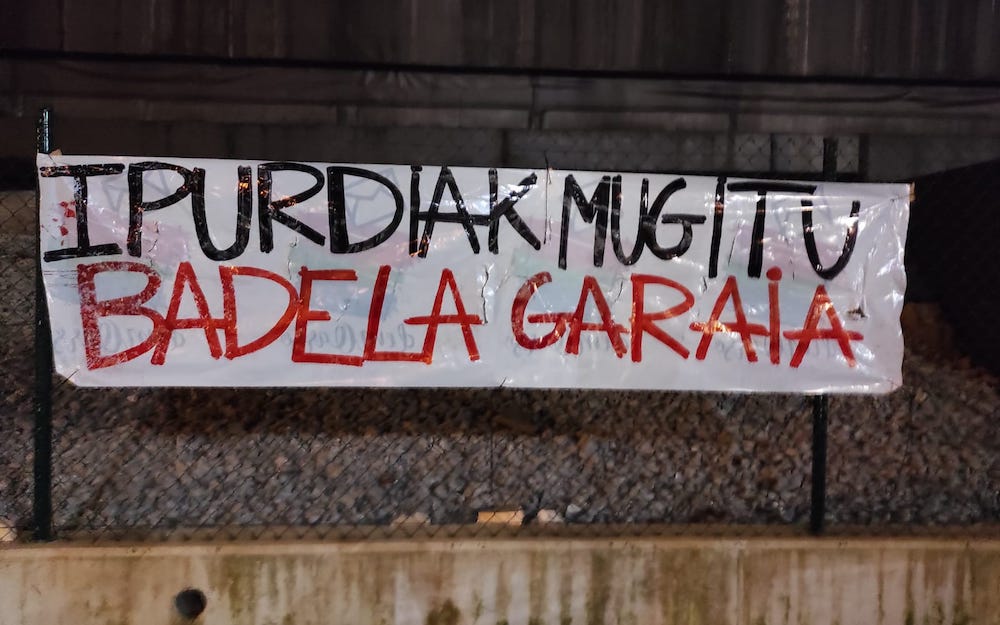 IPURDIAK MUGITU
BADELA GARAIA